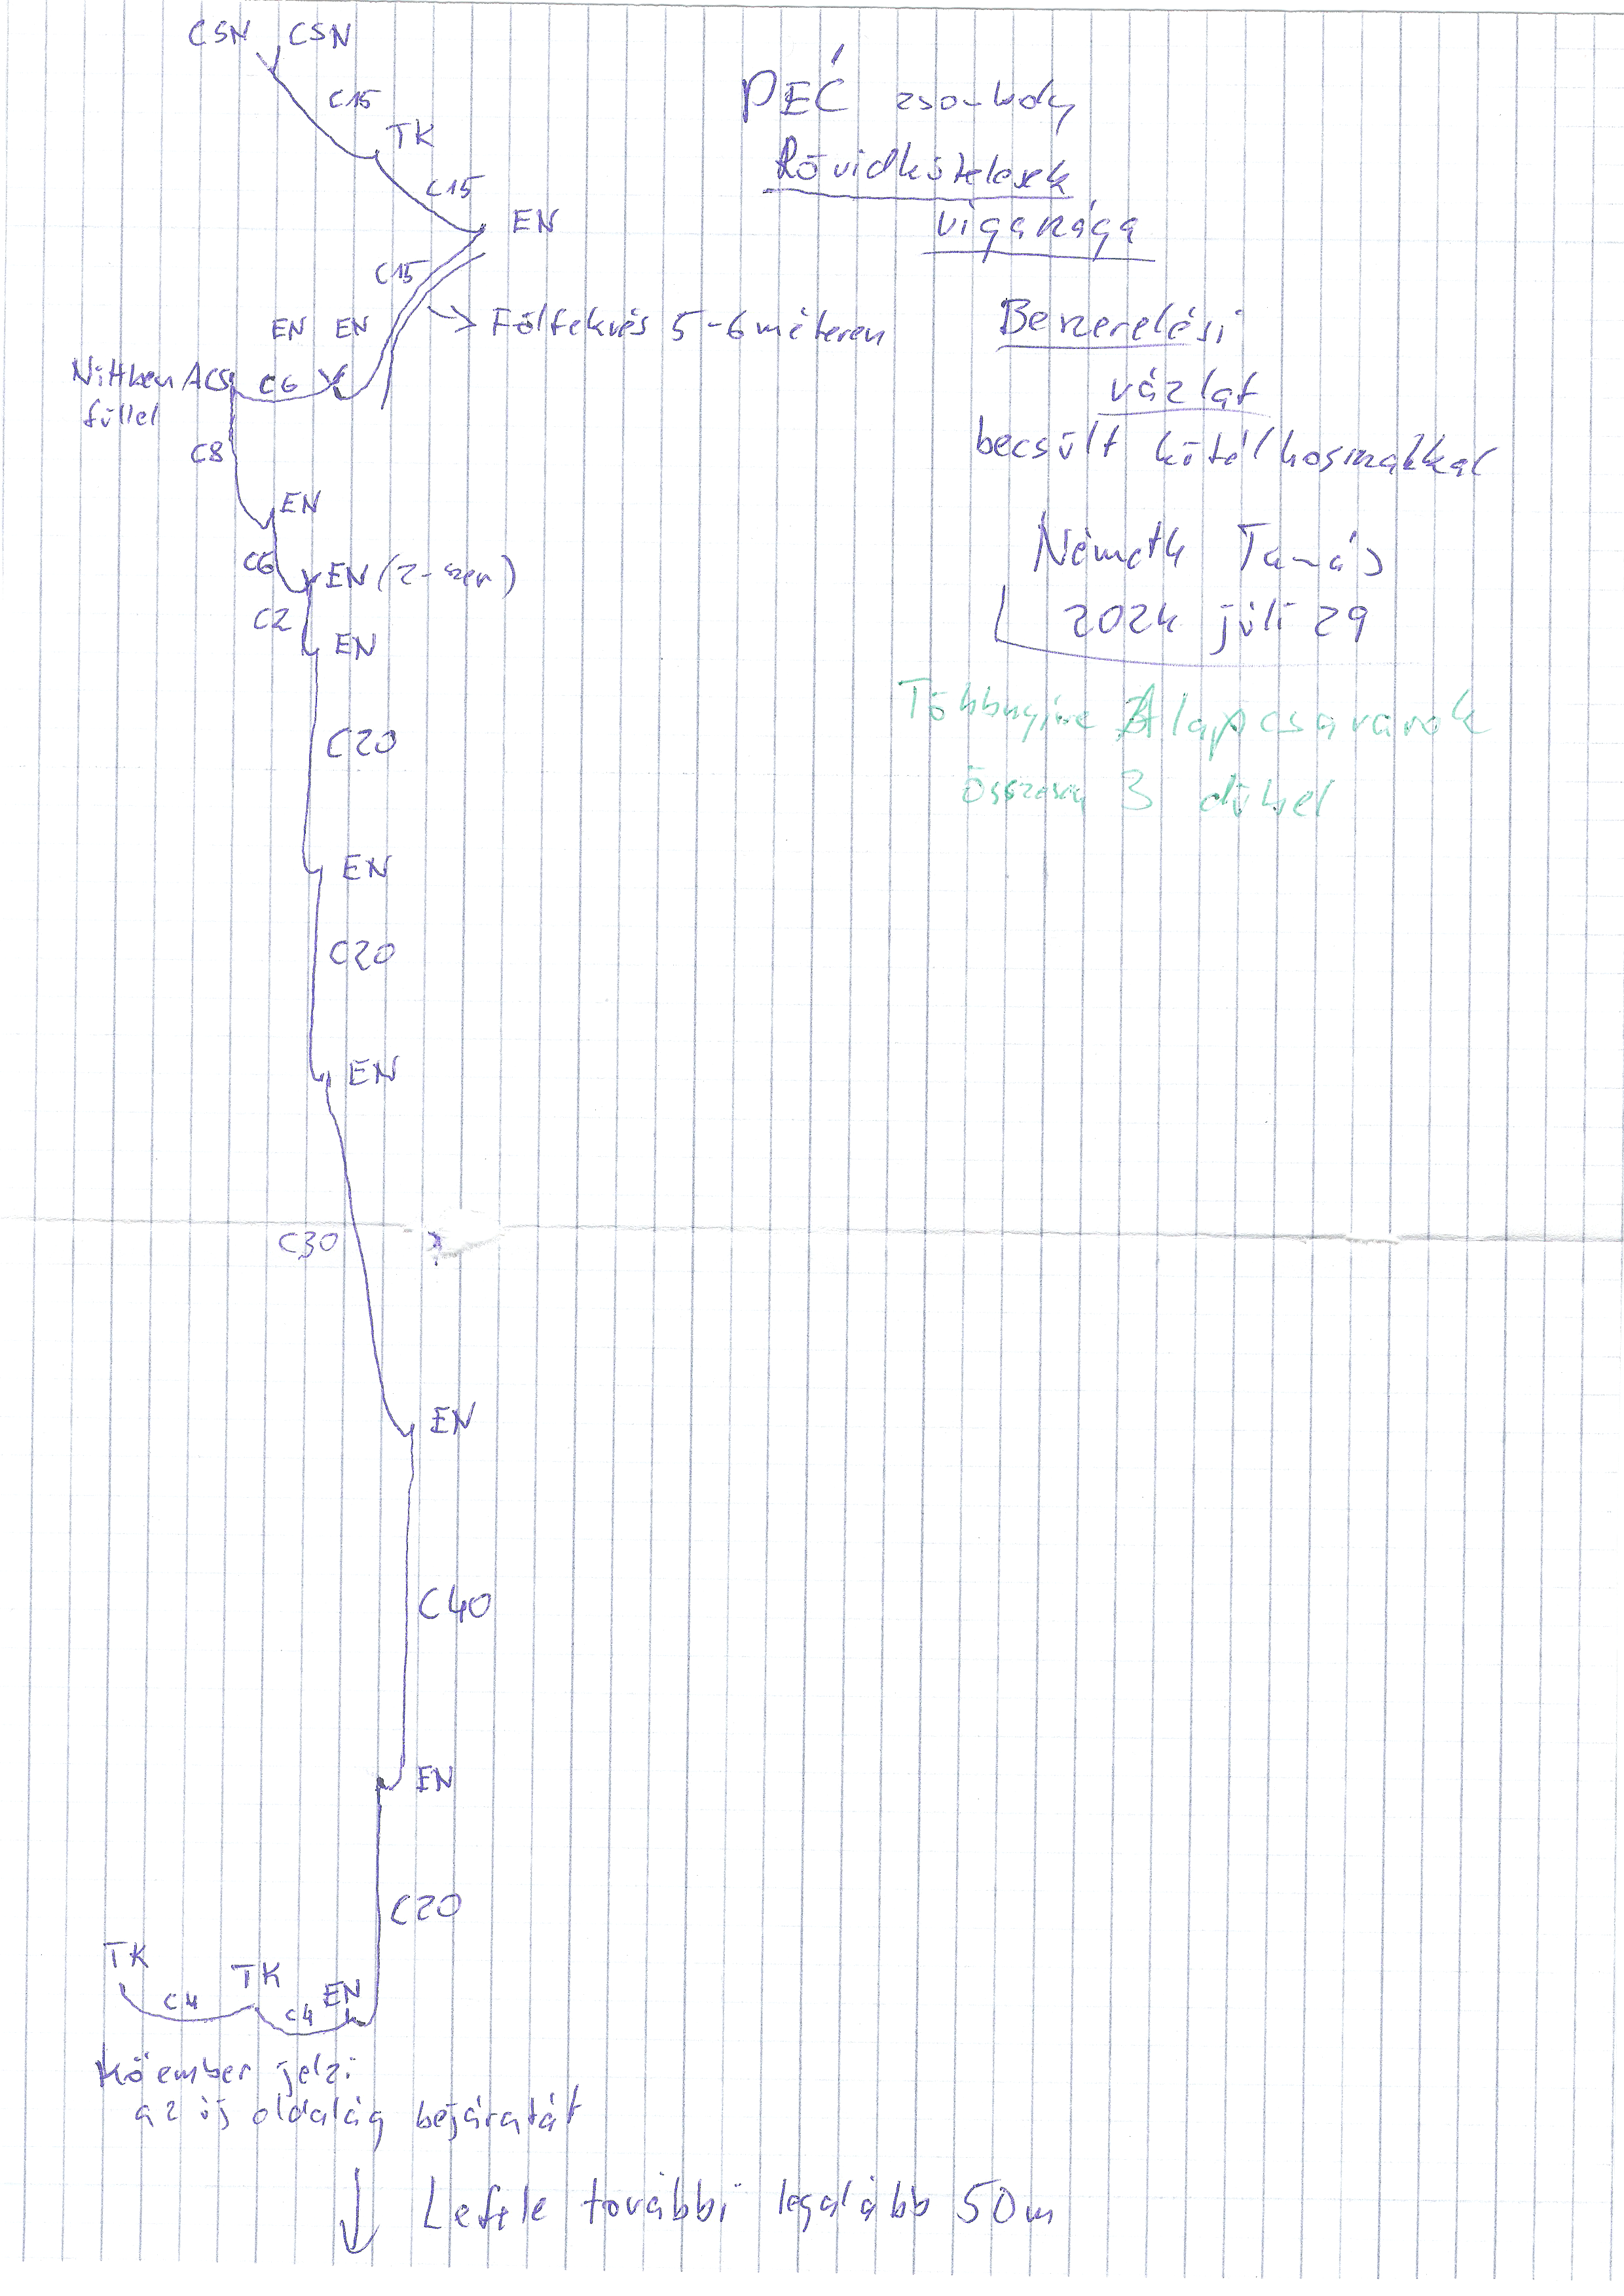 CSN CSN
C15
TK
C15
EN
C15
EN EN
Fölfekvés 5-6 méteren
Nittben ACS
füllel
C6
C8
EN
C6
EN (2-szer)
C2
EN
C20
EN
C20
EN
C30
EN
C40
EN
C20
TK
C4
TK
C4
EN
Kőember jelzi
az új oldalág bejáratát
Lefele további legalább 50m
PEĆ zsomboly
Rövidkötelesek
vigaszága
Beszerelési
vázlat
becsült kötélhosszakkal
Németh Tamás
2024 júli 29
Többnyire Alapcsavarok
összesen 3 dűbel